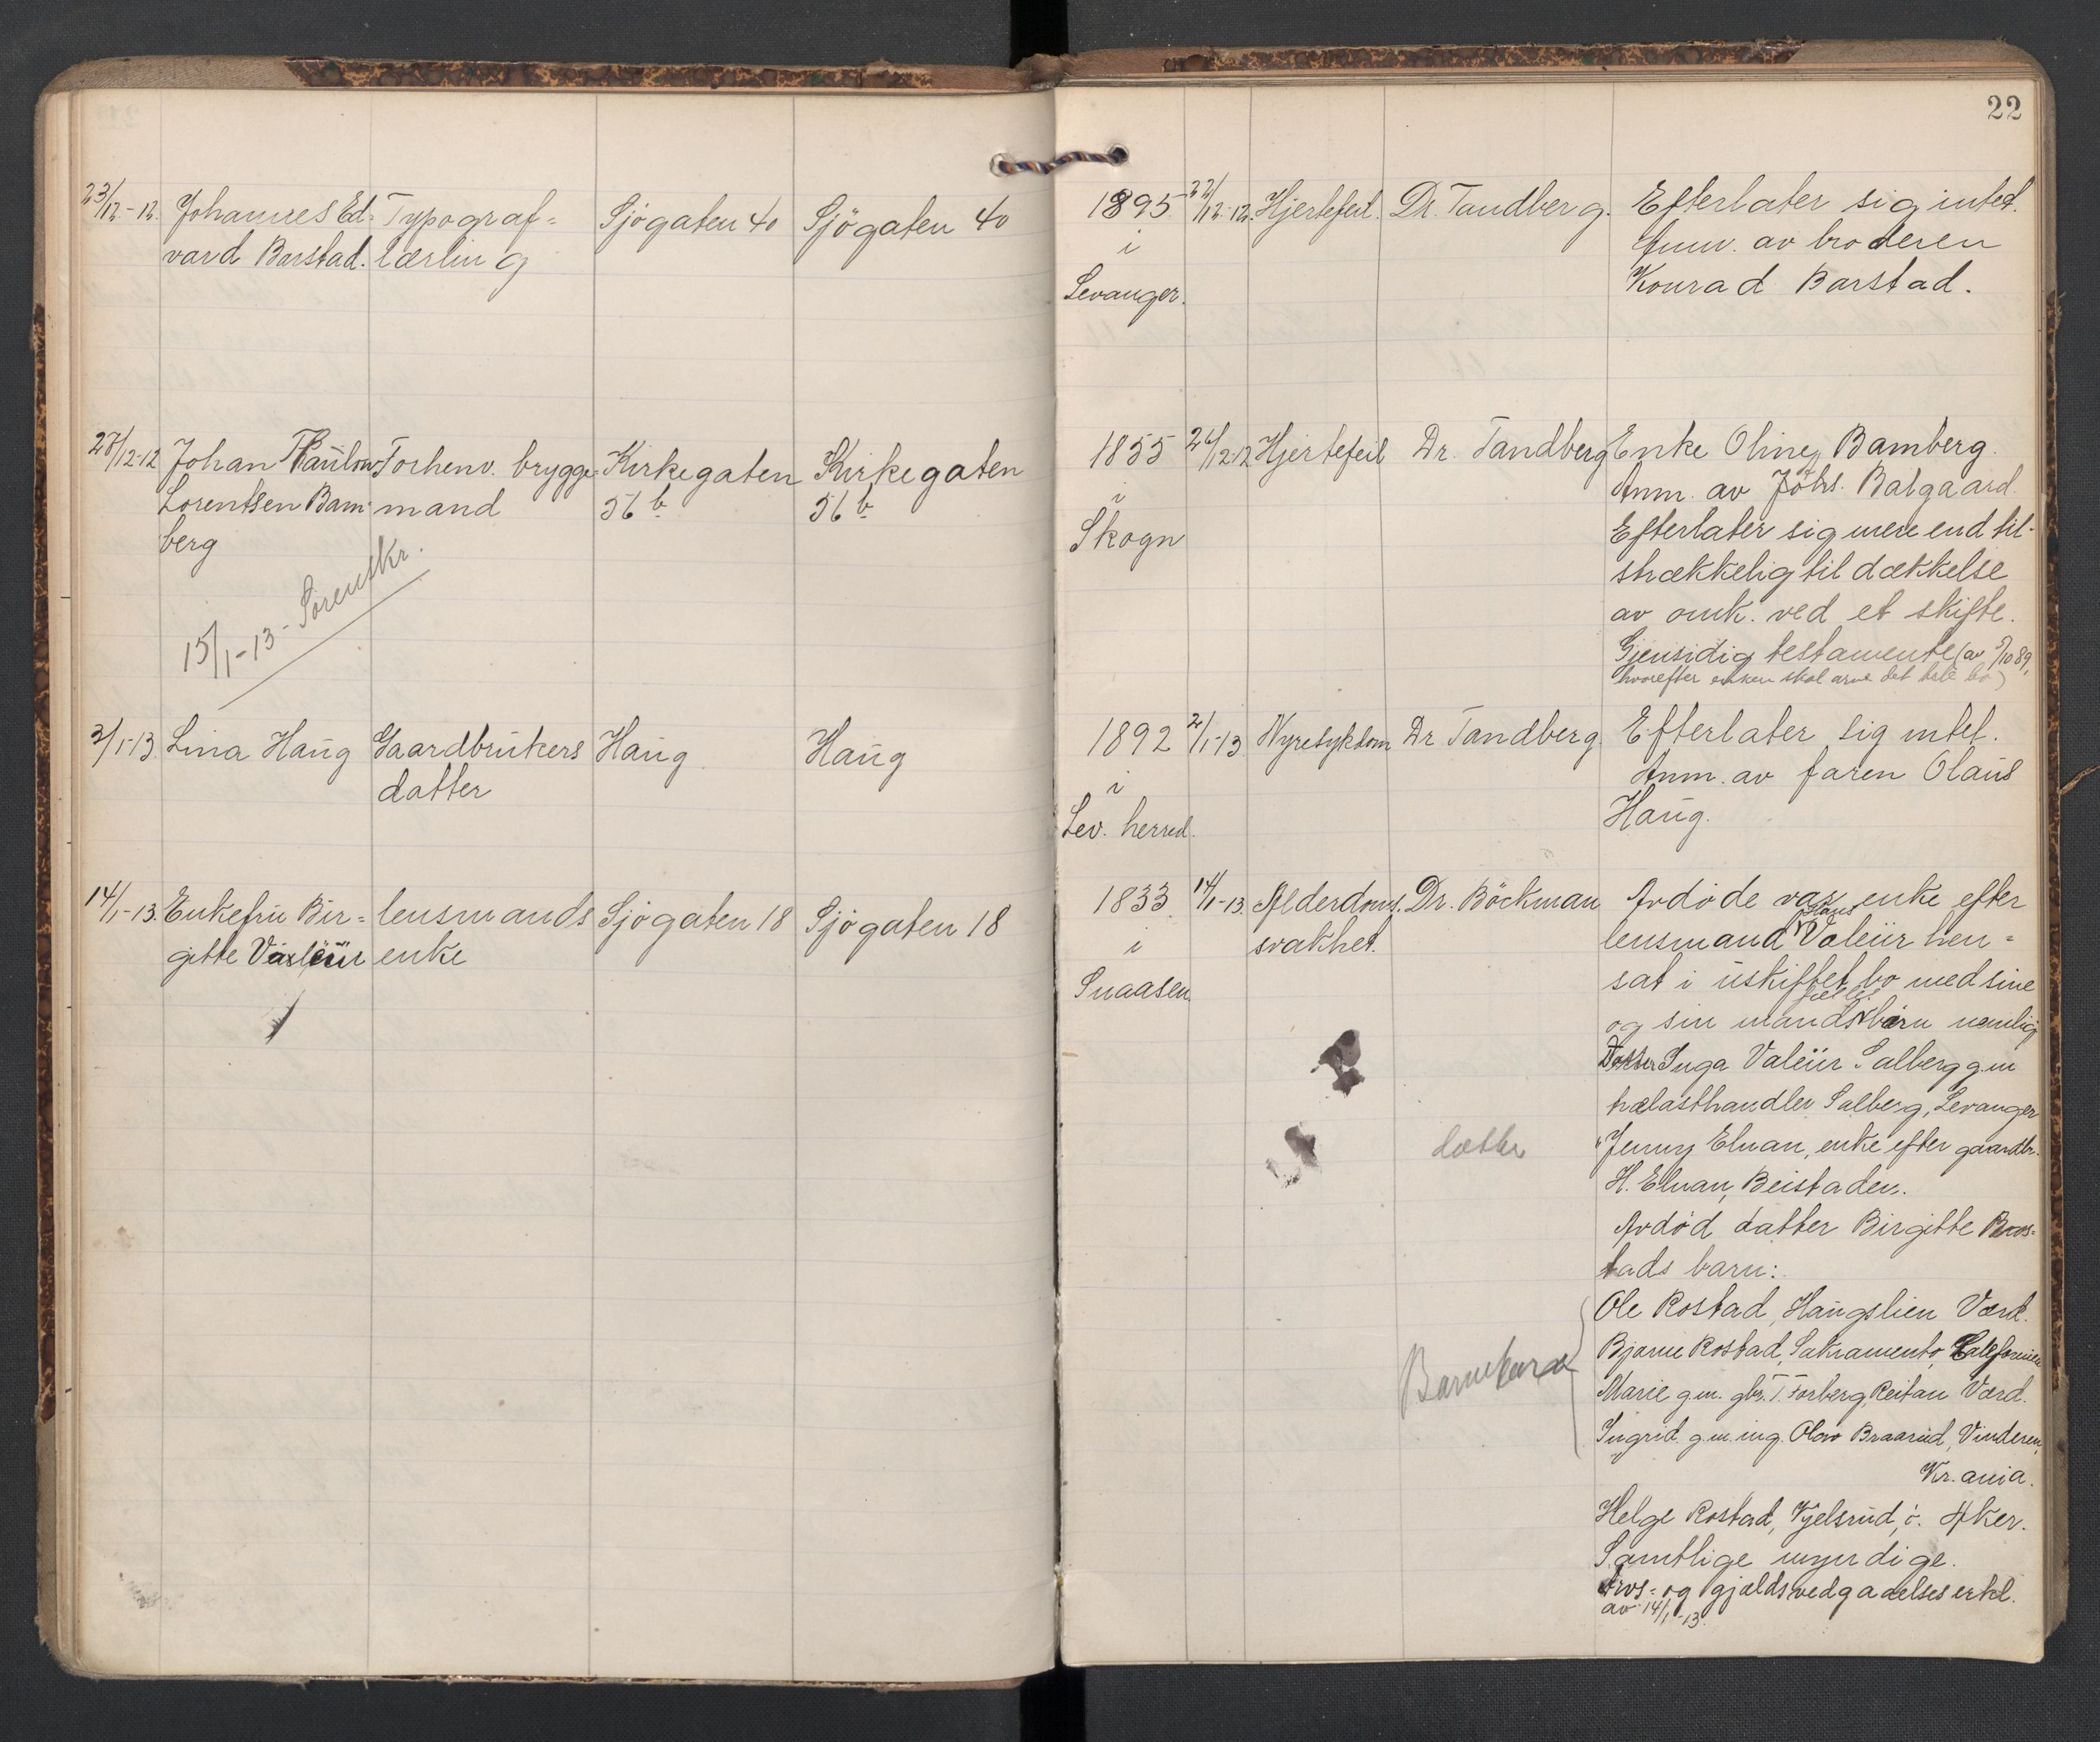 22
23/12-12. Johannes Ed= Typograf= Sjøgaten 40 Sjøgaten 40 1895 22/12-12. Hjertefeil. Dr. Tandberg. Efterlater sig intet.
vard Barstad. lærling i Anm. av broderen
Levanger. Konrad Barstad.
27/12-12 Johan Paulin Forhenv. brygge= Kirkegaten Kirkegaten 1855 Hjertefeil Dr. Tandberg Enke Oline Bamberg.
Lorentsen Bam- mand 56 b 56 b i Anm. av Johs. Balgaard.
berg Skogn Efterlater sig mere end til-
strækkelig til dækkelse
av omk. ved et skifte.
15/1-13- Gjensidig testamente (av /10 89,
hvorefter enken skal arve det hele bo)
3/1-13. Lina Haug Gaardbrukers Haug. Haug 1892 2/1-13. Nyresykdom Dr Tandberg. Efterlater sig intet.
datter i Anm. av faren Olaus
Lev. herred. Haug.
14/1-13. Enkefru Bir= lensmands Sjøgaten 18 Sjøgaten 18 1833 14/1-13. Alderdoms. Dr. Böckman Avdøde var enke efter
gitte Valeur enke i svakhet. lensmand Valeur hen=
Snaasen sat i uskiftet bo med sine
og sin mands barn nemlig
Datter Inga Valeur Salberg g.m
trælasthandler Salberg, Levanger
datter " Jenny Elnan, enke efter gaardbr.
H. Elnan, Beistaden.
Avdød datter Birgitte Ros=
tads barn:
Barnebarn Ole Rostad, Haugslien Værd.
Bjarne Rostad, Sakramento, Californien
Marie g.m. gbr. T. Forberg, Reitan Værd.
Ingrid g.m. ing. Olav Braarud, Vinderen,
Kr.ania.
Helge Rostad, Kjelsrud, ø. Aker.
Samtlige myndige.
Arvs- og gjældsvedgaaelseserkl.
av 14/1-13.